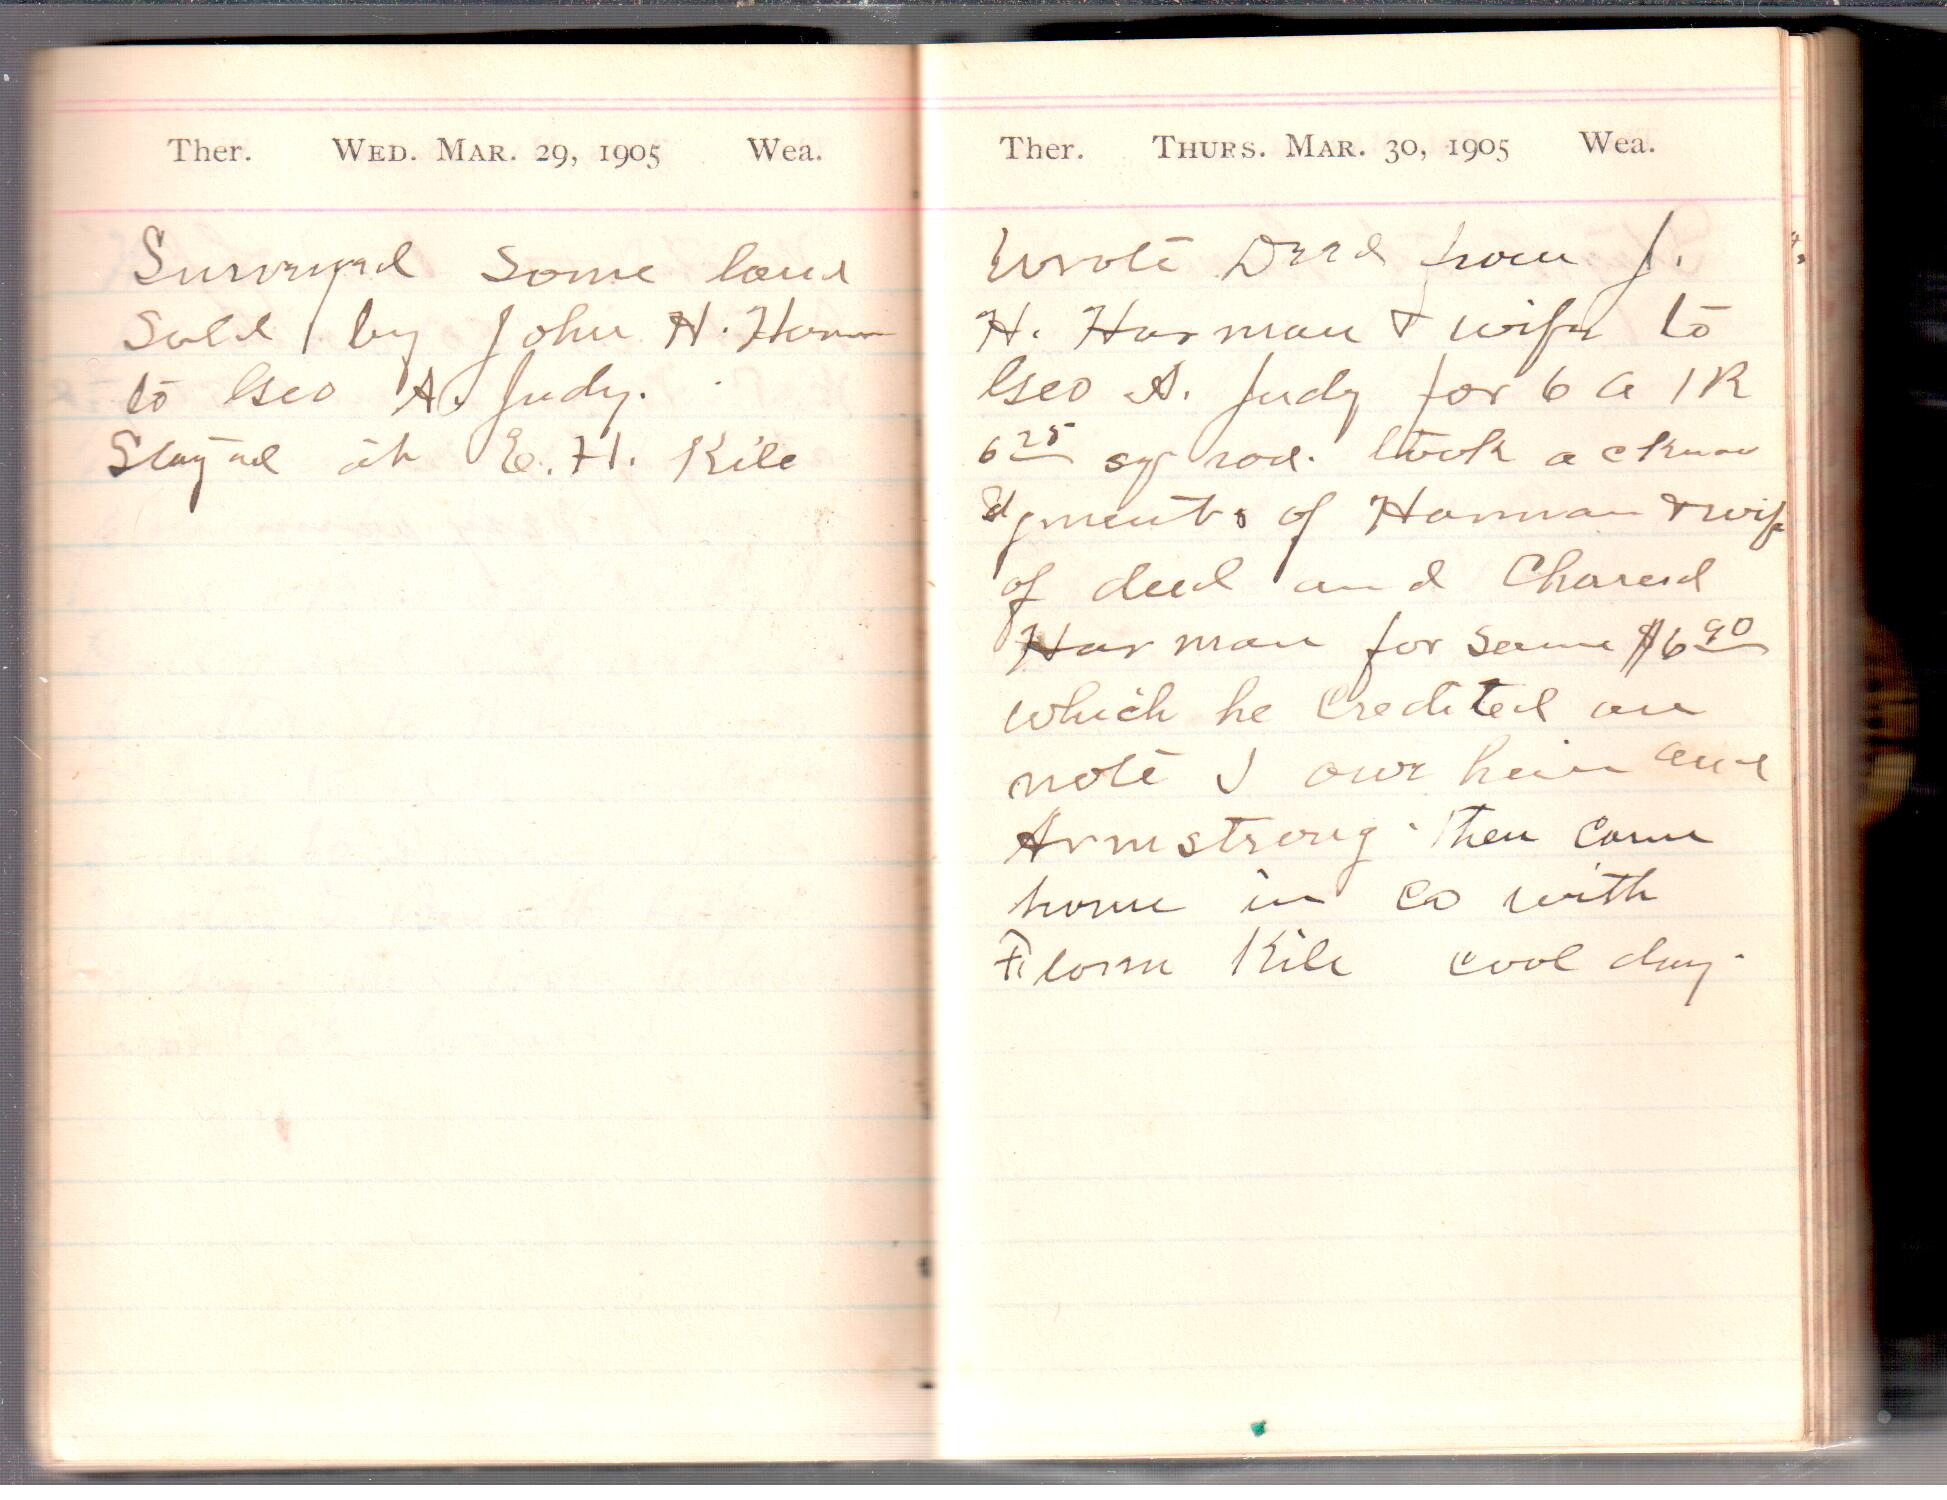 Ther. WED. MAR. 29, 1905 Wea.
Surveyed some land
sold by John H. Harman
to Geo A. Judy.
Stayed at E. H. Kile
Ther. THURS. MAR. 30, 1905 Wea.
Wrote Deed from J.
H. Harman & wife to
Geo A. Judy for 6 A 1 R
6 25 sq rod. I took acknow
ldgments of Harman & wife
of deed and Chared
Harman for same $6 90
which he Credited on
note I owe him and
Armstrong. Then came
home in Co with
Kile cool day.